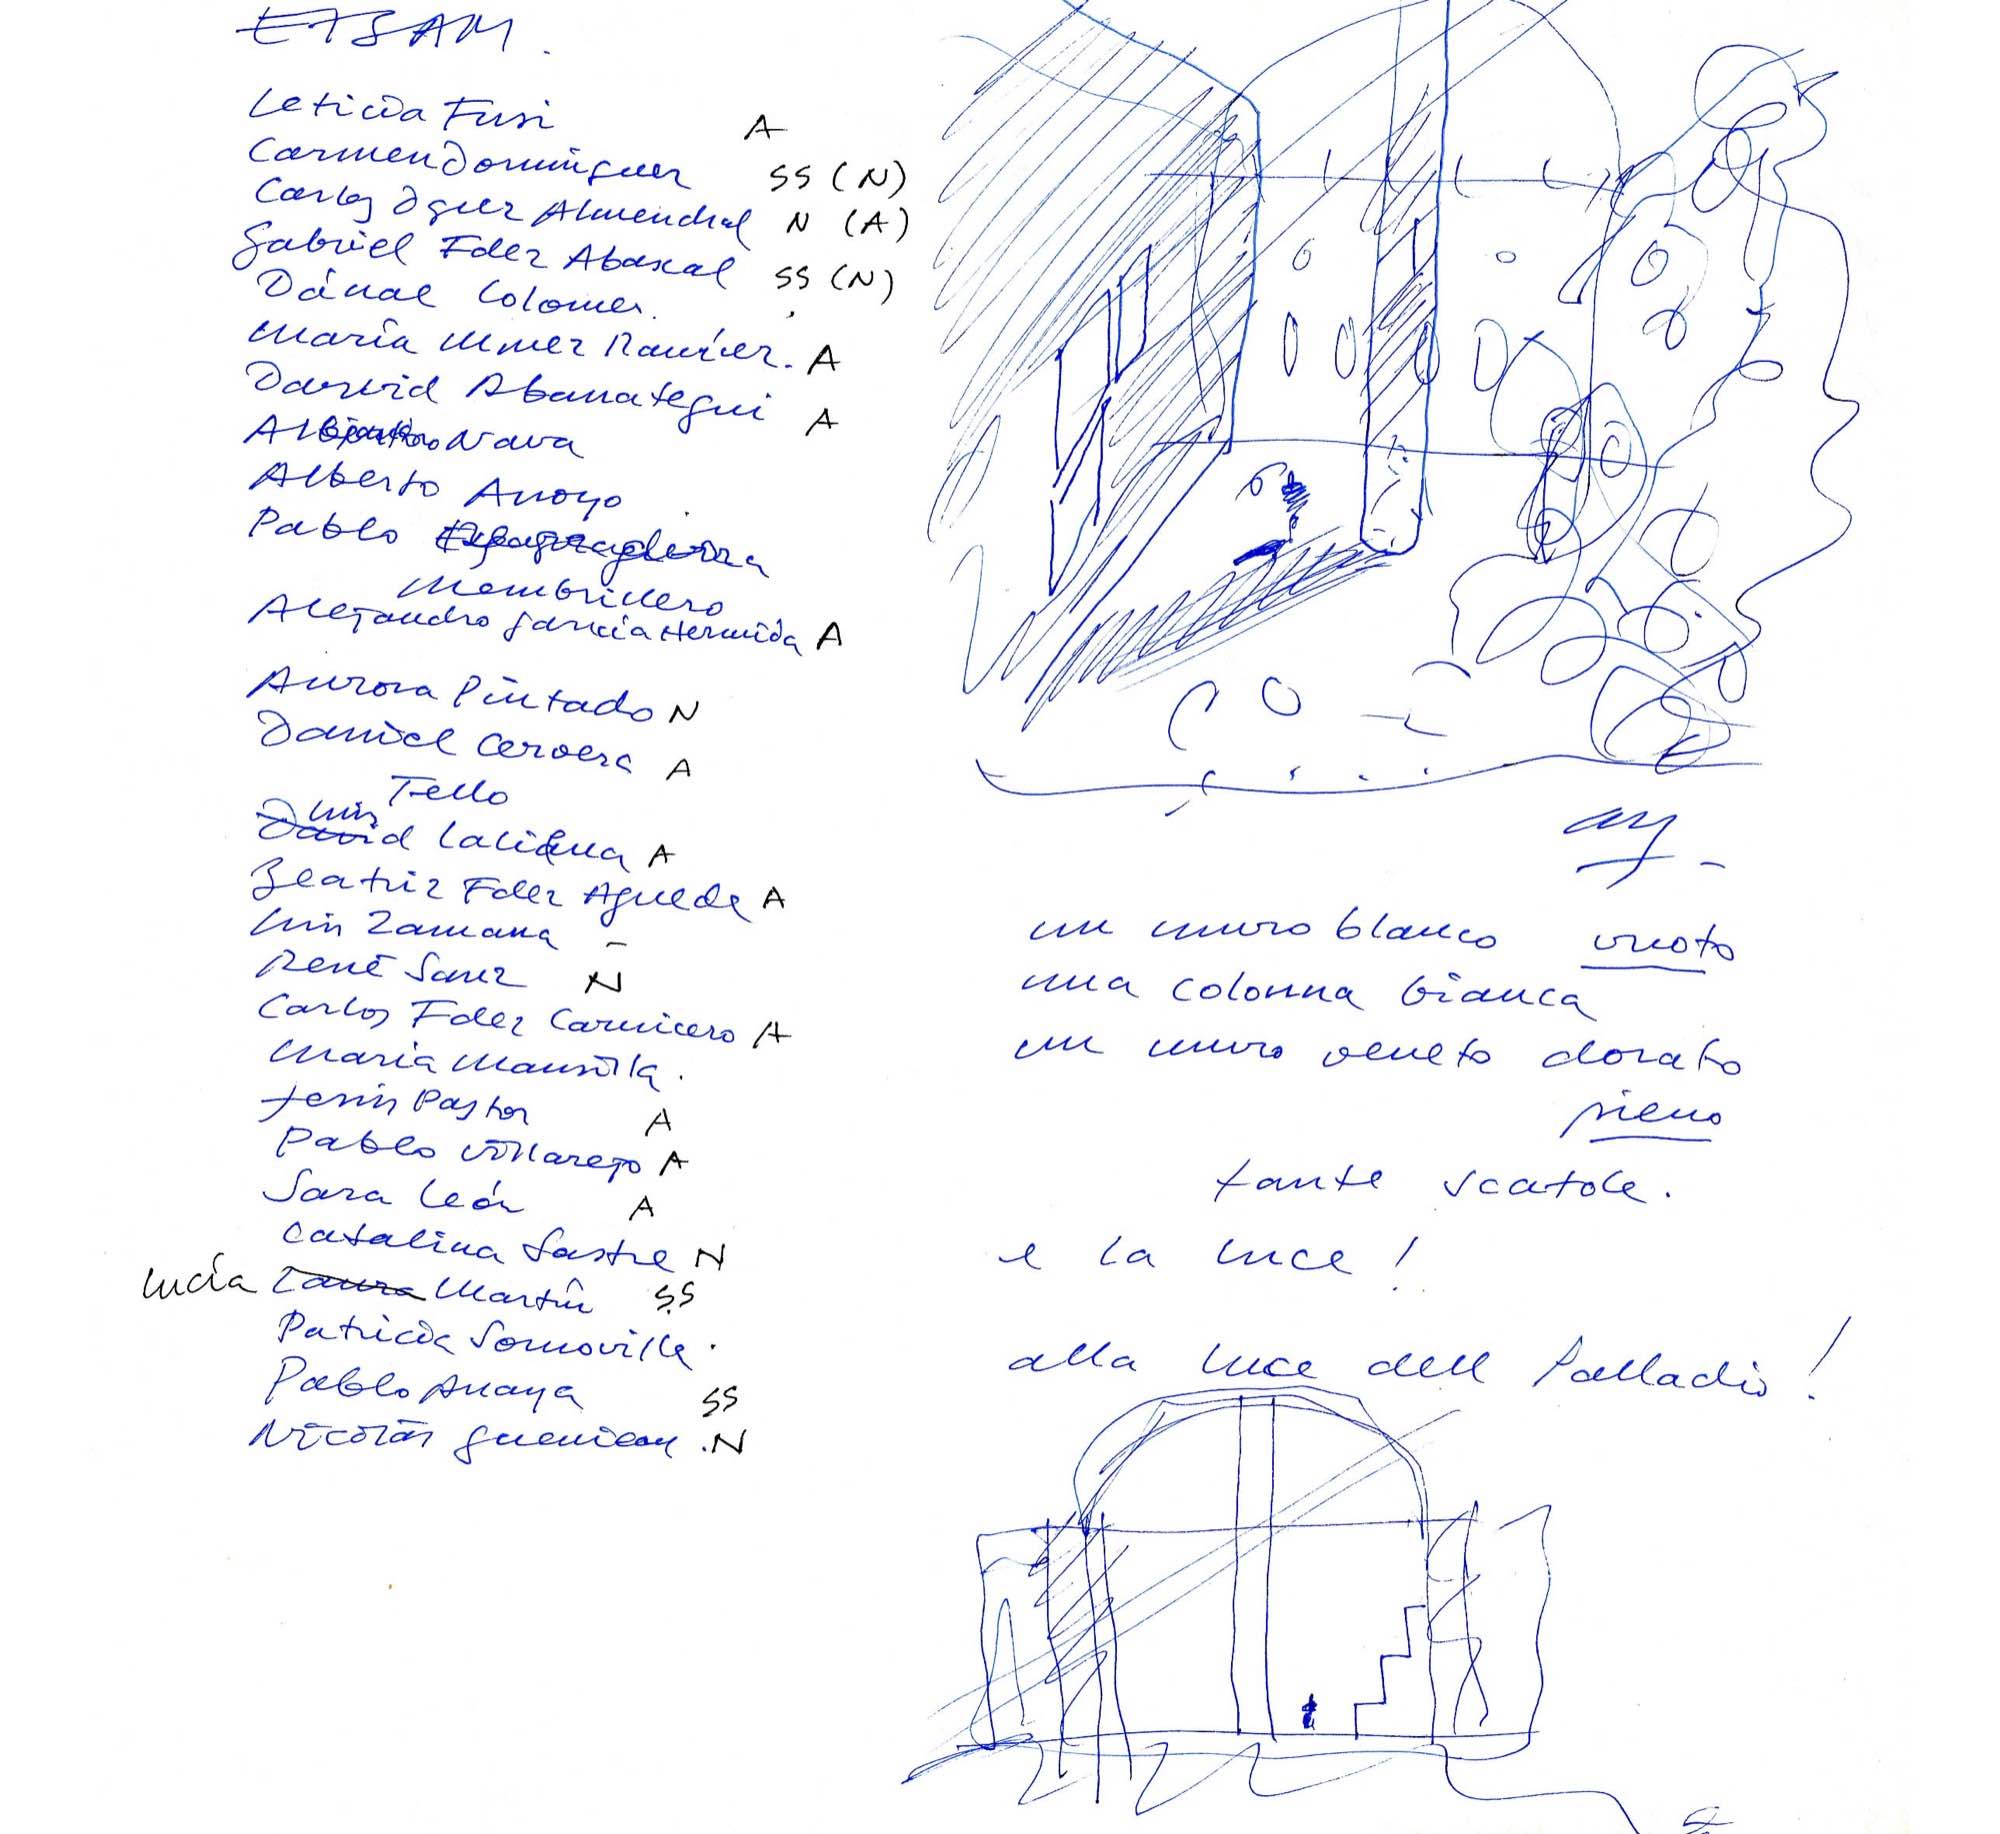 ETSAM.
Leticia Fusi A
Carmen Domínguez SS (N)
Carlos Dguez Almendral N (A)
Gabriel Fdez Abascal SS (N)
Dánae Colomer.
María Ramírez. A
David Abanategui A
Nava
Alberto Arroyo
Pablo
Membrillero
Alejandro García Hermida A
Aurora Pintado N
Daniel Cervera A
Tello
Luis
David A
Beatriz Fdez Aguede A
Luis Zamana –
René Sanz N
Carlos Fdez Carnicero A
María Mansilla.
Jesús Pastor A
Pablo Villarejo A
Sara León A
Catalina Sastre N
Lucía Laura Martín SS
Patricia Somovilla.
Pablo Anaya SS
Nicolás N
un muro blanco vuoto
una colonna bianca
un muro veneto dorato
pieno
tante scatole.
e la luce!
alla luce dell Palladio!